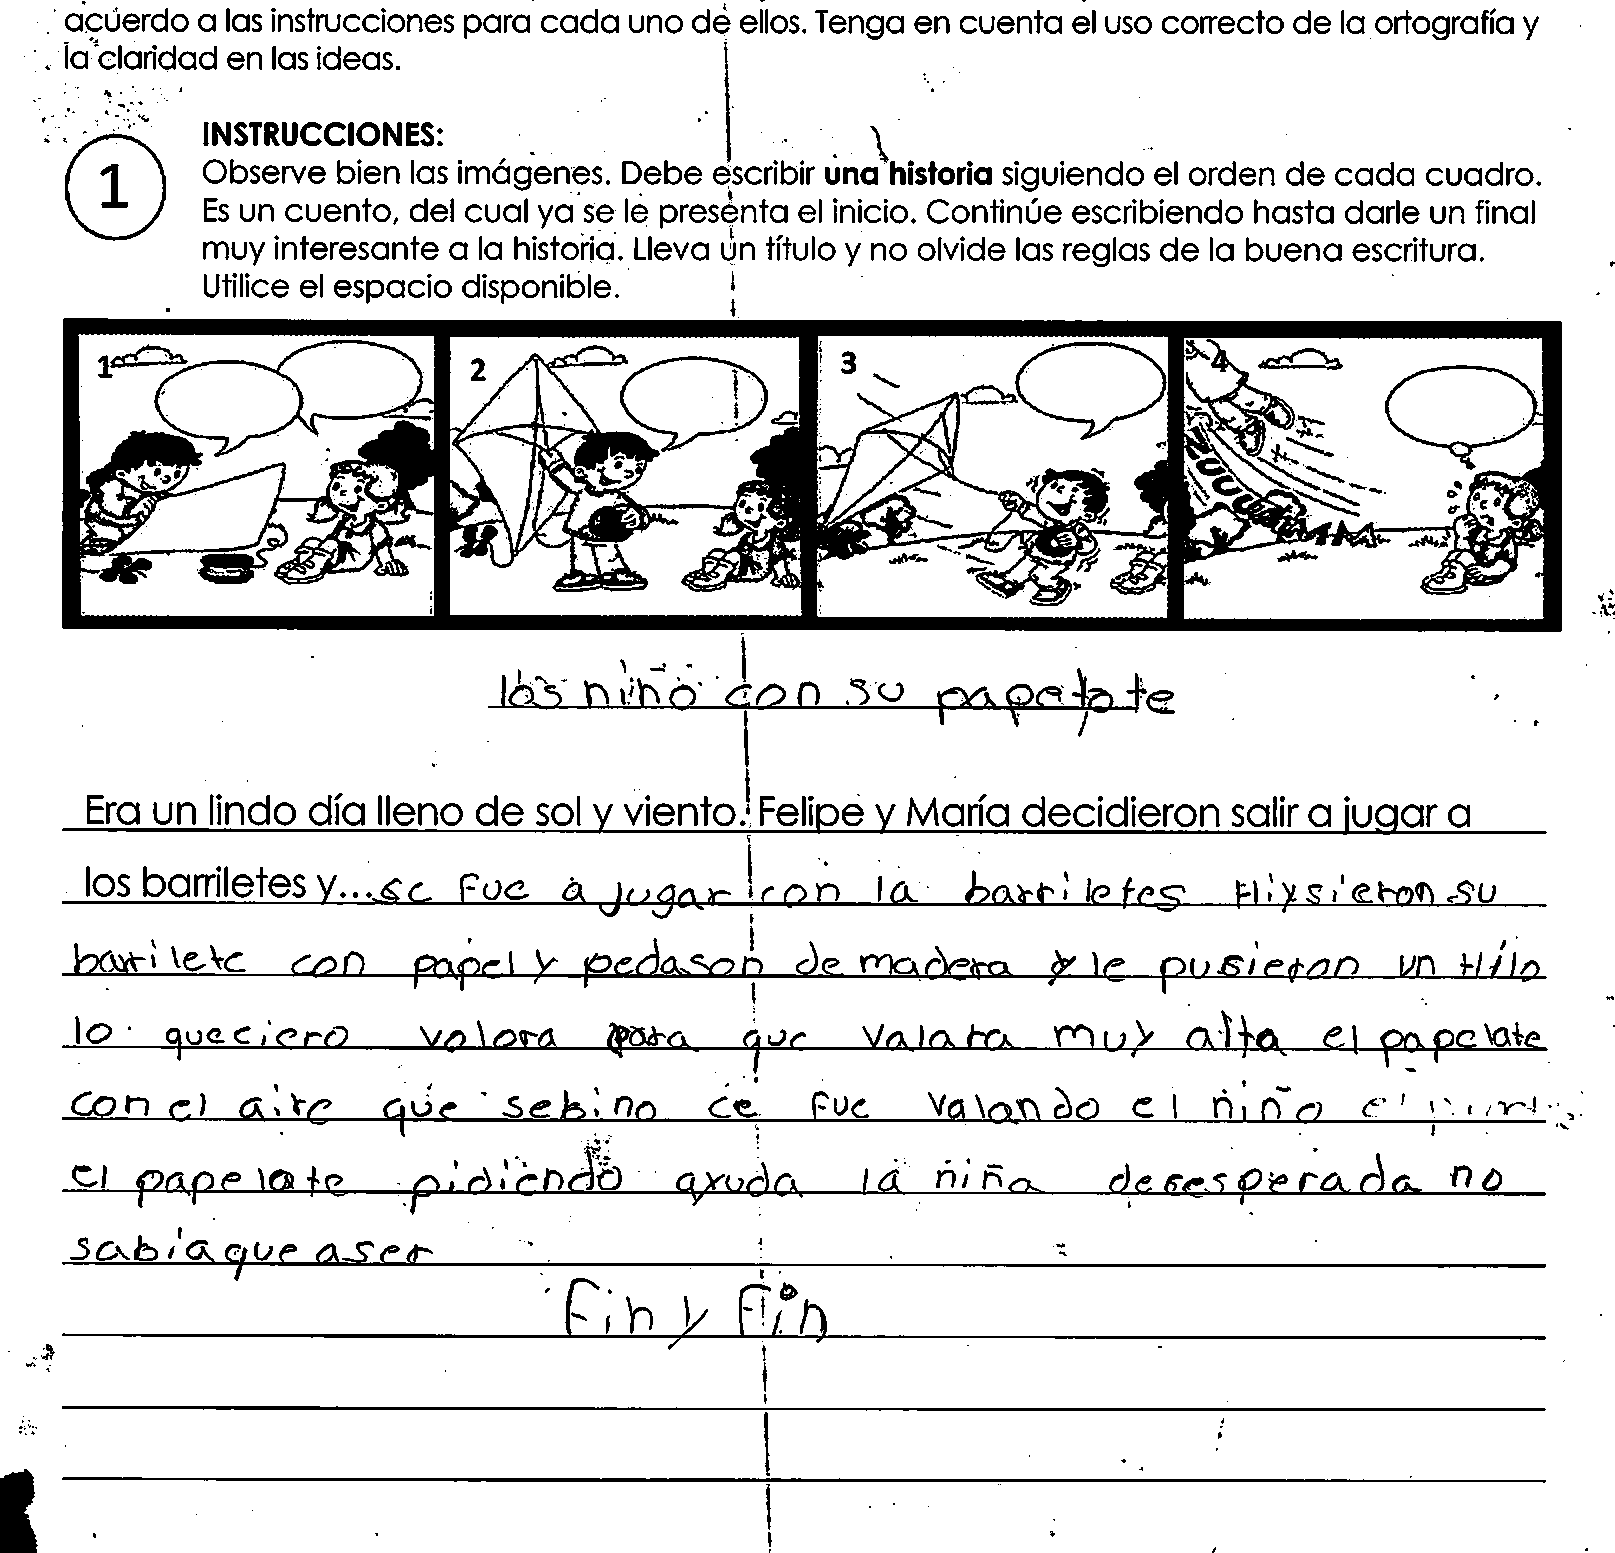 acuerdo a las instrucciones para cada uno de ellos. Tenga en cuenta el uso correcto de la ortografía y
la claridad en las ideas.
INSTRUCCIONES:
1
Observe bien las imágenes. Debe escribir una historia siguiendo el orden de cada cuadro.
Es un cuento, del cual ya se le presenta el inicio. Continúe escribiendo hasta darle un final
muy interesante a la historia. Lleva un título y no olvide las reglas de la buena escritura.
Utilice el espacio disponible.
1 2 3 4
ZUUUUMMM
los niño con su papelote
Era un lindo día lleno de sol y viento. Felipe y María decidieron salir a jugar a
los barriletes y... se fue a jugar con la barriletes Hiysieron su
barrilete con papel y pedason de madera y le pusieron un Hilo
lo queciero volora para que valara muy alta el papelate
con el aire que sebino ce fue valando el niño
el papelate pidiendo ayuda la niña desesperada no
sabia que aser
Fin y Fin